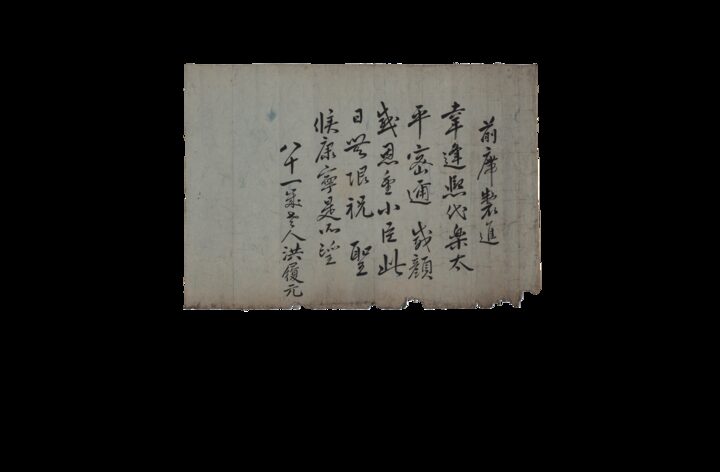 前席製進
幸逢熙代樂太
平密邇 威顔
感恩重小臣此
日無限祝 聖
候康寧是所望
八十一歲老人洪履元